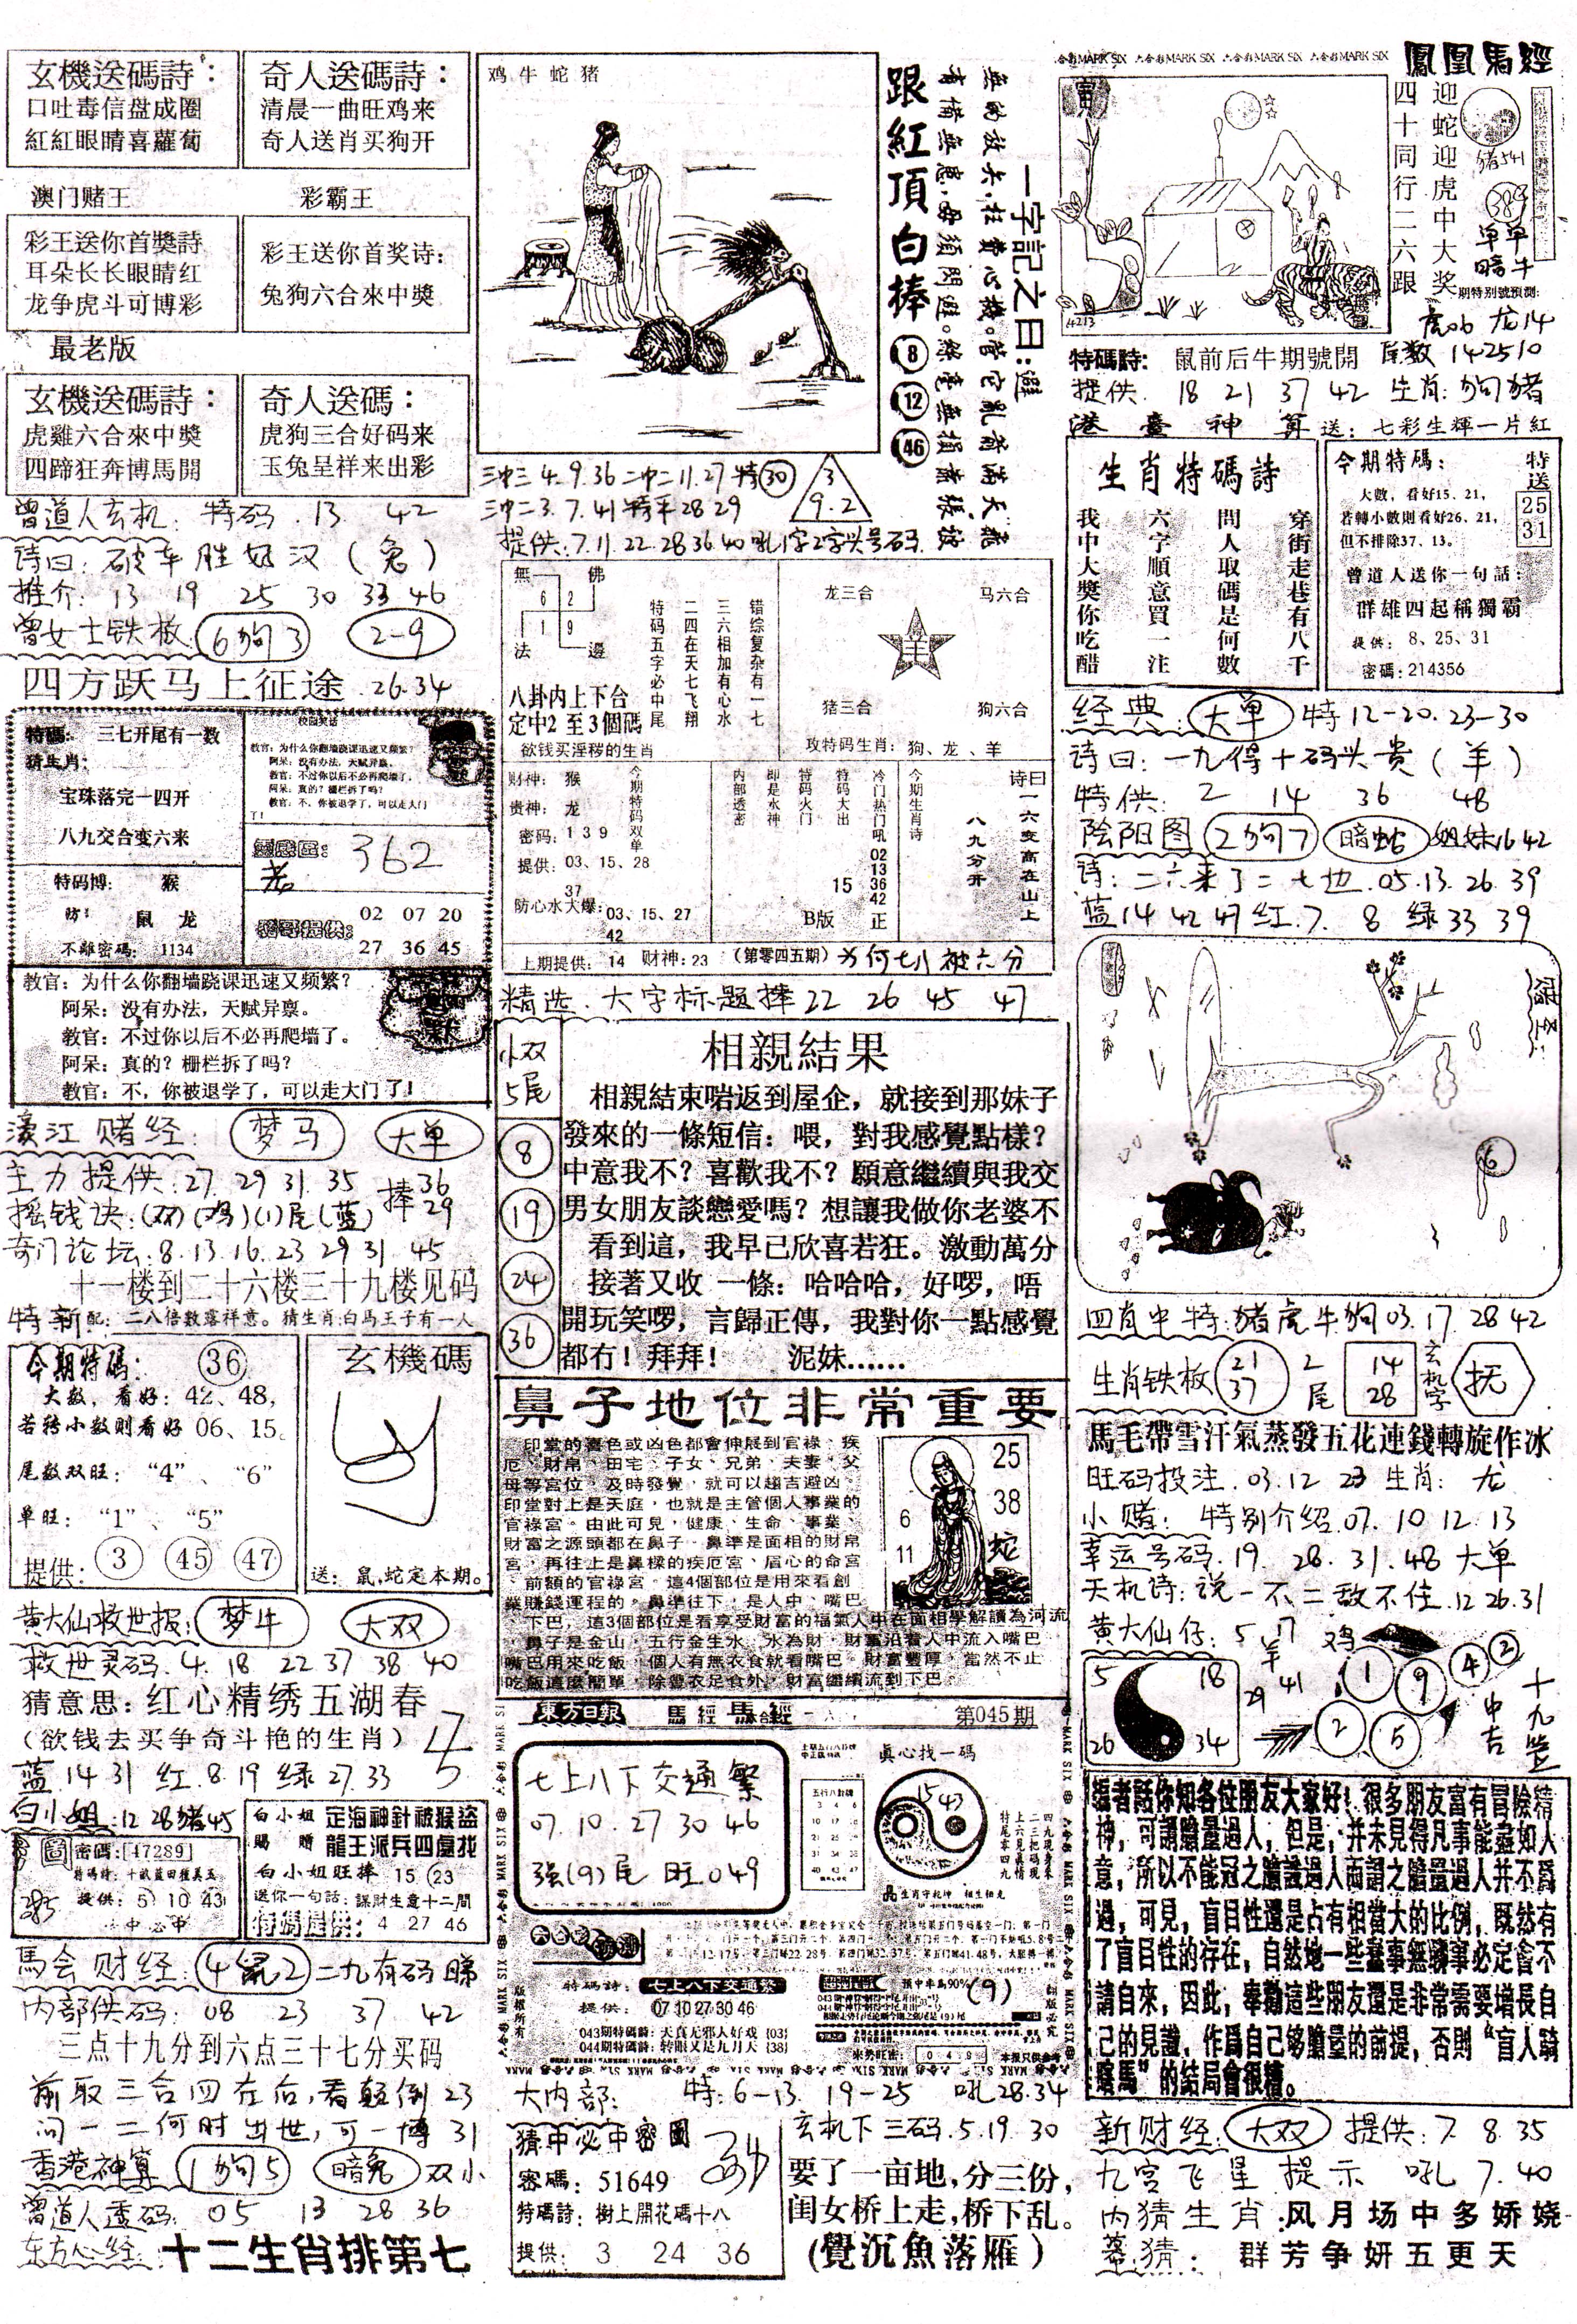 玄機送碼詩：
口吐毒信盘成圈
紅紅眼睛喜蘿蔔
奇人送碼詩：
清晨一曲旺鸡来
奇人送肖买狗开
澳门赌王
彩霸王
彩王送你首獎詩
耳朵长长眼睛红
龙争虎斗可博彩
彩王送你首奖诗：
兔狗六合來中獎
最老版
玄機送碼詩：
虎雞六合來中獎
四蹄狂奔博馬開
奇人送碼：
虎狗三合好码来
玉兔呈祥来出彩
曾道人玄机：特码.13 42
诗曰：破车胜好汉（兔）
推介：13 19 25 30 33 46
曾女士铁板 6狗3 2-9
四方跃马上征途.26.34
特碼： 三七开尾有一数
猜生肖：
宝珠落完一四开
八九交合变六来
特码博： 猴
防： 鼠 龙
不離密碼： 1134
校园笑话
教官：为什么你翻墙跷课迅速又频繁？
阿呆：没有办法，天赋异禀。
教官：不过你以后不必再爬墙了。
阿呆：真的？栅栏拆了吗？
教官：不，你被退学了，可以走大门
了！
362
02 07 20
27 36 45
教官：为什么你翻墙跷课迅速又频繁？
阿呆：没有办法，天赋异禀。
教官：不过你以后不必再爬墙了。
阿呆：真的？栅栏拆了吗？
教官：不，你被退学了，可以走大门了！
濠江赌经： 梦马 大单
主力提供：27 29 31.35 捧36
摇钱诀：(双)(鸡)(1)尾(蓝) 29
奇门论坛.8.13.16.23 29 31 45
十一楼到二十六楼三十九楼见码
特新配：二八倍數露祥意。猜生肖：白馬王子有一人
今期特碼： 36
大数，看好：42、48，
若转小数则看好 06、15。
尾数双旺：“4”、“6”
单旺：“1”、“5”
提供： 3 45 47
玄機碼
送：鼠,蛇定本期。
黄大仙救世报： 梦牛 大双
救世灵码.4.18 22 37 38 40
猜意思：红心精绣五湖春
（欲钱去买争奇斗艳的生肖）
蓝14 31 红.8.19 绿27.33
白小姐：12 28猪45
密碼：47289
提供：5 10 43
白小姐 定海神針被猴盜
賜贈 龍王派兵四處找
白小姐旺捧 15 23
送你一句話：謀財生意十二間
特碼提供： 4 27 46
馬会财经： 4鼠2 二九有码睇
内部供码：08 23 37 42
三点十九分到六点三十七分买码
前取三合四在后,看颠倒23
问一二何时出世,可一博31
香港神算 1狗5 暗兔 双小
曾道人透码：05 13 28 36
东方心经： 十二生肖排第七
鸡牛蛇猪
跟紅頂白捧 8 12 46
一字記之曰:避
三冲三 4.9.36 二冲二11.27 特30
三冲二3.7.41特平28 29
3
9.2
提供：7.11.22.28 36 40吼1字2字头号码
無 佛
6 2
1 9
法 邊
八卦内上下台
定中2至3個碼
欲钱买淫秽的生肖
错综复杂有一七
三六相加有心水
二四在天七飞翔
特码五字必中尾
龙三合
马六合
羊
猪三合
狗六合
攻特码生肖：狗、龙、羊
财神： 猴
贵神： 龙
密码：139
提供：03、15、28
37
防心水大爆：03、15、27
42
今期特码双单
内部透密
即是水神
特码火门
特码大出
15
B版
冷门热门吼
02
13
36
42
正
今期生肖诗
诗曰
一六变高在山上
八九分开
上期提供：14 财神：23 （第零四五期）为何七八被六分
精选.大字标题捧22 26 45 47
小双
5尾
8
19
24
36
相親結果
相親結束啱返到屋企，就接到那妹子
發來的一條短信：喂，對我感覺點樣？
中意我不？喜歡我不？願意繼續與我交
男女朋友談戀愛嗎？想讓我做你老婆不
看到這，我早已欣喜若狂。激動萬分
接著又收 一條：哈哈哈，好啰，唔
開玩笑啰，言歸正傳，我對你一點感覺
都冇！拜拜！ 泥妹……
鼻子地位非常重要
印堂的喜色或凶色都會伸展到官祿、疾
厄、財帛、田宅、子女、兄弟、夫妻、父
母等宮位。及時發覺，就可以趨吉避凶。
印堂對上是天庭，也就是主管個人事業的
官祿宮。由此可見，健康、生命、事業、
財富之源頭都在鼻子。鼻準是面相的財帛
宮，再往上是鼻樑的疾厄宮、眉心的命宮
、前額的官祿宮。這4個部位是用來看創
業賺錢運程的。鼻準往下，是人中、嘴巴
、下巴，這3個部位是看享受財富的福氣人中在面相學解讀為河流
，鼻子是金山，五行金生水，水為財，財富沿着人中流入嘴巴，
嘴巴用來吃飯，個人有無衣食就看嘴巴。財富豐厚，當然不止
吃飯這麼簡單，除豐衣足食外，財富繼續流到下巴。
25
38
6
11
蛇
東方日報 馬經 第045期
七上八下交通繁
07.10.27 30 46
强(9)尾 旺049
真心找一碼
15 43
特碼詩： 七上八下交通繁
提供： 07 10 27 30 46
043期特碼詩：天真无邪人好戏{03}
044期特碼詩：转眼又是九月天{38}
(9)
版權所有
翻版必究
大内部： 特：6-13. 19-25 吼28.34
猜中必中密圖
密碼：51649
特碼詩：樹上開花碼十八
提供： 3 24 36
玄机下三码.5.19.30
要了一亩地,分三份,
闺女桥上走,桥下乱。
(覺沉魚落雁)
六合彩MARK SIX 六合彩MARK SIX 六合彩MARK SIX
鳳凰馬經
迎蛇迎虎中大奖
四十同行二六跟
猪541
389
单单
暗牛
期特别號預測:
虎06 龙14
特碼詩: 鼠前后牛期號開 尾数 142510
提供. 18 21 37 42 生肖：狗猪
港臺神算 送：七彩生輝一片紅
生肖特碼詩
穿街走巷有八千
問人取碼是何數
六字順意買一注
我中大獎你吃醋
今期特碼：
大數，看好15、21，
若轉小數則看好26、21，
但不排除37、13。
特送
25
31
曾道人送你一句話：
群雄四起稱獨霸
提供： 8、25、31
密碼：214356
经典： 大单 特12-20.23-30
诗曰：一九得十码头贵（羊）
特供：2 14 36 48
阴阳图 2狗7 暗蛇 姐妹16 42
诗：二六来了二七也.05.13.26.39
蓝14 42 47 红.7. 8 绿33 39
6
四肖中特：猪虎牛狗03.17 28 42
生肖铁板 21 37 2尾 14 28 玄机字 抚
馬毛帶雪汗氣蒸發五花連錢轉旋作冰
旺码投注.03.12 23 生肖：龙
小赌：特别介绍.07.10 12.13
幸运号码.19. 28.31.48 大单
天机诗：说一不二敌不住.12 26.31
黄大仙仔：5 17 鸡
羊
5 18
26 34
29 41
1 9 4 2
2 5
中吉
十九签
編者話你知各位朋友大家好！很多朋友富有冒險精
神，可謂膽量過人，但是，并未見得凡事能盡如人
意，所以不能冠之膽識過人而謂之膽量過人并不爲
過，可見，盲目性還是占有相當大的比例，既然有
了盲目性的存在，自然地一些蠢事無聊事必定會不
請自來，因此，奉勸這些朋友還是非常需要增長自
己的見識，作爲自己够膽量的前提，否則“盲人騎
瞎馬”的結局會很糟。
新财经： 大双 提供：7. 8.35
九宫飞星提示 吼7.40
内猜生肖：风月场中多娇娆
幕猜： 群芳争妍五更天